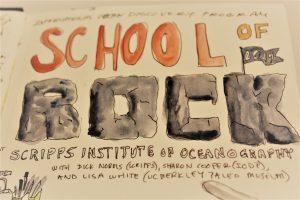 INTERNATIONAL OCEAN DISCOVERY PROGRAM
SCHOOL OF
ROCK
SCRIPPS INSTITUTE OF OCEANOGRAPHY
WITH DICK NORRIS (SCRIPPS), SHARON COOPER (IODP),
AND LISA WHITE (UC BERKELEY PALEO MUSEUM)